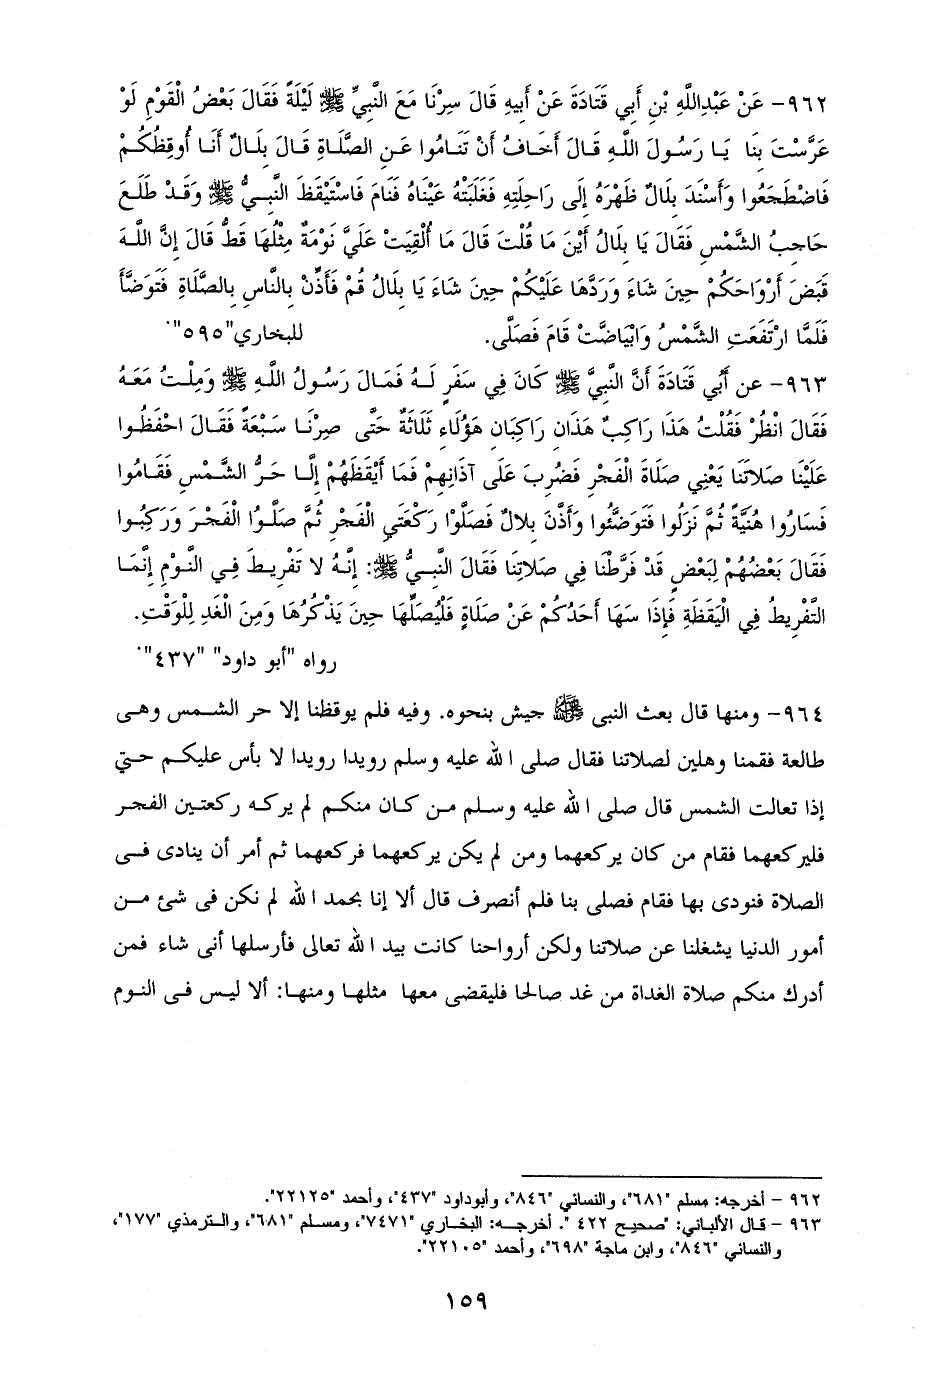 ٩٦٢- عَنْ عَبْدِاللَّهِ بْنِ أَبِي قَتَادَةَ عَنْ أَبِيهِ قَالَ سِرْنَا مَعَ النَّبِيِّ ﷺ لَيْلَةً فَقَالَ بَعْضُ الْقَوْمِ لَوْ
عَرَّسْتَ بِنَا يَا رَسُولَ اللَّهِ قَالَ أَخَافُ أَنْ تَنَامُوا عَنِ الصَّلَاةِ قَالَ بِلَالٌ أَنَا أُوقِظُكُمْ
فَاضْطَجَعُوا وَأَسْنَدَ بِلَالٌ ظَهْرَهُ إِلَى رَاحِلَتِهِ فَغَلَبَتْهُ عَيْنَاهُ فَنَامَ فَاسْتَيْقَظَ النَّبِيُّ ﷺ وَقَدْ طَلَعَ
حَاجِبُ الشَّمْسِ فَقَالَ يَا بِلَالُ أَيْنَ مَا قُلْتَ قَالَ مَا أُلْقِيَتْ عَلَيَّ نَوْمَةٌ مِثْلُهَا قَطُّ قَالَ إِنَّ اللَّهَ
قَبَضَ أَرْوَاحَكُمْ حِينَ شَاءَ وَرَدَّهَا عَلَيْكُمْ حِينَ شَاءَ يَا بِلَالُ قُمْ فَأَذِّنْ بِالنَّاسِ بِالصَّلَاةِ فَتَوَضَّأَ
فَلَمَّا ارْتَفَعَتِ الشَّمْسُ وَابْيَاضَّتْ قَامَ فَصَلَّى. للبخاري"٥٩٥".
٩٦٣- عن أَبِي قَتَادَةَ أَنَّ النَّبِيَّ ﷺ كَانَ فِي سَفَرٍ لَهُ فَمَالَ رَسُولُ اللَّهِ ﷺ وَمِلْتُ مَعَهُ
فَقَالَ انْظُرْ فَقُلْتُ هَذَا رَاكِبٌ هَذَانِ رَاكِبَانِ هَؤُلَاءِ ثَلَاثَةٌ حَتَّى صِرْنَا سَبْعَةً فَقَالَ احْفَظُوا
عَلَيْنَا صَلَاتَنَا يَعْنِي صَلَاةَ الْفَجْرِ فَضُرِبَ عَلَى آذَانِهِمْ فَمَا أَيْقَظَهُمْ إِلَّا حَرُّ الشَّمْسِ فَقَامُوا
فَسَارُوا هُنَيَّةً ثُمَّ نَزَلُوا فَتَوَضَّئُوا وَأَذَّنَ بِلَالٌ فَصَلَّوْا رَكْعَتَيِ الْفَجْرِ ثُمَّ صَلَّوُا الْفَجْرَ وَرَكِبُوا
فَقَالَ بَعْضُهُمْ لِبَعْضٍ قَدْ فَرَّطْنَا فِي صَلَاتِنَا فَقَالَ النَّبِيُّ ﷺ: إِنَّهُ لَا تَفْرِيطَ فِي النَّوْمِ إِنَّمَا
التَّفْرِيطُ فِي الْيَقَظَةِ فَإِذَا سَهَا أَحَدُكُمْ عَنْ صَلَاةٍ فَلْيُصَلِّهَا حِينَ يَذْكُرُهَا وَمِنَ الْغَدِ لِلْوَقْتِ.
رواه "أبو داود" "٤٣٧".
٩٦٤- ومنها قال بعث النبى ﷺ جيش بنحوه. وفيه فلم يوقظنا إلا حر الشمس وهى
طالعة فقمنا وهلين لصلاتنا فقال صلى الله عليه وسلم رويدا رويدا لا بأس عليكم حتي
إذا تعالت الشمس قال صلى الله عليه وسلم من كان منكم لم يركه ركعتين الفجر
فليركعهما فقام من كان يركعهما ومن لم يكن يركعهما فركعهما ثم أمر أن ينادى فى
الصلاة فنودى بها فقام فصلى بنا فلم أنصرف قال ألا إنا بحمد الله لم نكن فى شئ من
أمور الدنيا يشغلنا عن صلاتنا ولكن أرواحنا كانت بيد الله تعالى فأرسلها أنى شاء فمن
أدرك منكم صلاة الغداة من غد صالحا فليقضى معها مثلها ومنها: ألا ليس فى النوم
٩٦٢ - أخرجه: مسلم "٦٨١"، والنسائي "٨٤٦"، وأبوداود "٤٣٧"، وأحمد "٢٢١٢٥".
٩٦٣ - قال الألباني: "صحيح ٤٢٢ ". أخرجه: البخاري "٧٤٧١"، ومسلم "٦٨١"، والترمذي "١٧٧"،
والنسائي "٨٤٦"، وابن ماجة "٦٩٨"، وأحمد "٢٢١٠٥".
١٥٩